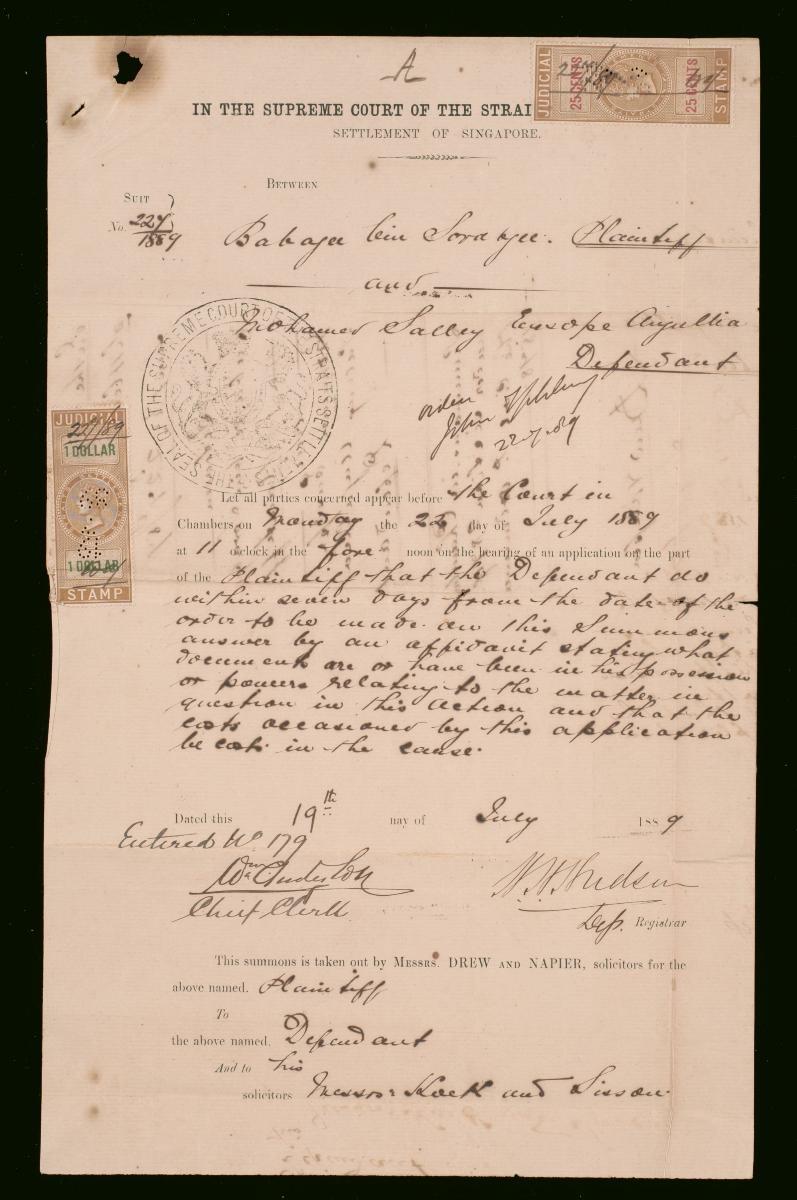 A
IN THE SUPREME COURT OF THE STRAI
SETTLEMENT OF SINGAPORE.
JUDICIAL
25 CENTS
25 CENTS
STAMP
BETWEEN
SUIT
No. 227
1889
Babajee bin Sorabjee. Plaintiff
and
Mohamed Salley Eusope Angullia
Defendant
THE SEAL OF THE SUPREME COURT OF THE STRAITS SETTLEMENTS
order
John
22.7.89
JUDICIAL
22/7/89
1 DOLLAR
1 DOLLAR
STAMP
Let all parties concerned appear before the Court in
Chambers on Monday the 22 day of July 1889
at 11 o'clock in the fore noon on the hearing of an application on the part
of the Plaintiff that the Defendant do
within seven days from the date of the
order to be made on this Summons
answer by an affidavit stating what
documents are or have been in his possession
or powers relating to the matter in
question in this action and that the
costs occasioned by this application
be costs in the cause.
Dated this 19th day of July 1889
Entered No. 179
Wm Anderson
Chief Clerk
Dep. Registrar
This summons is taken out by MESSRS. DREW AND NAPIER, solicitors for the
above named. Plaintiff
To
the above named. Defendant
And to his
solicitors Messrs Koek and Sisson.